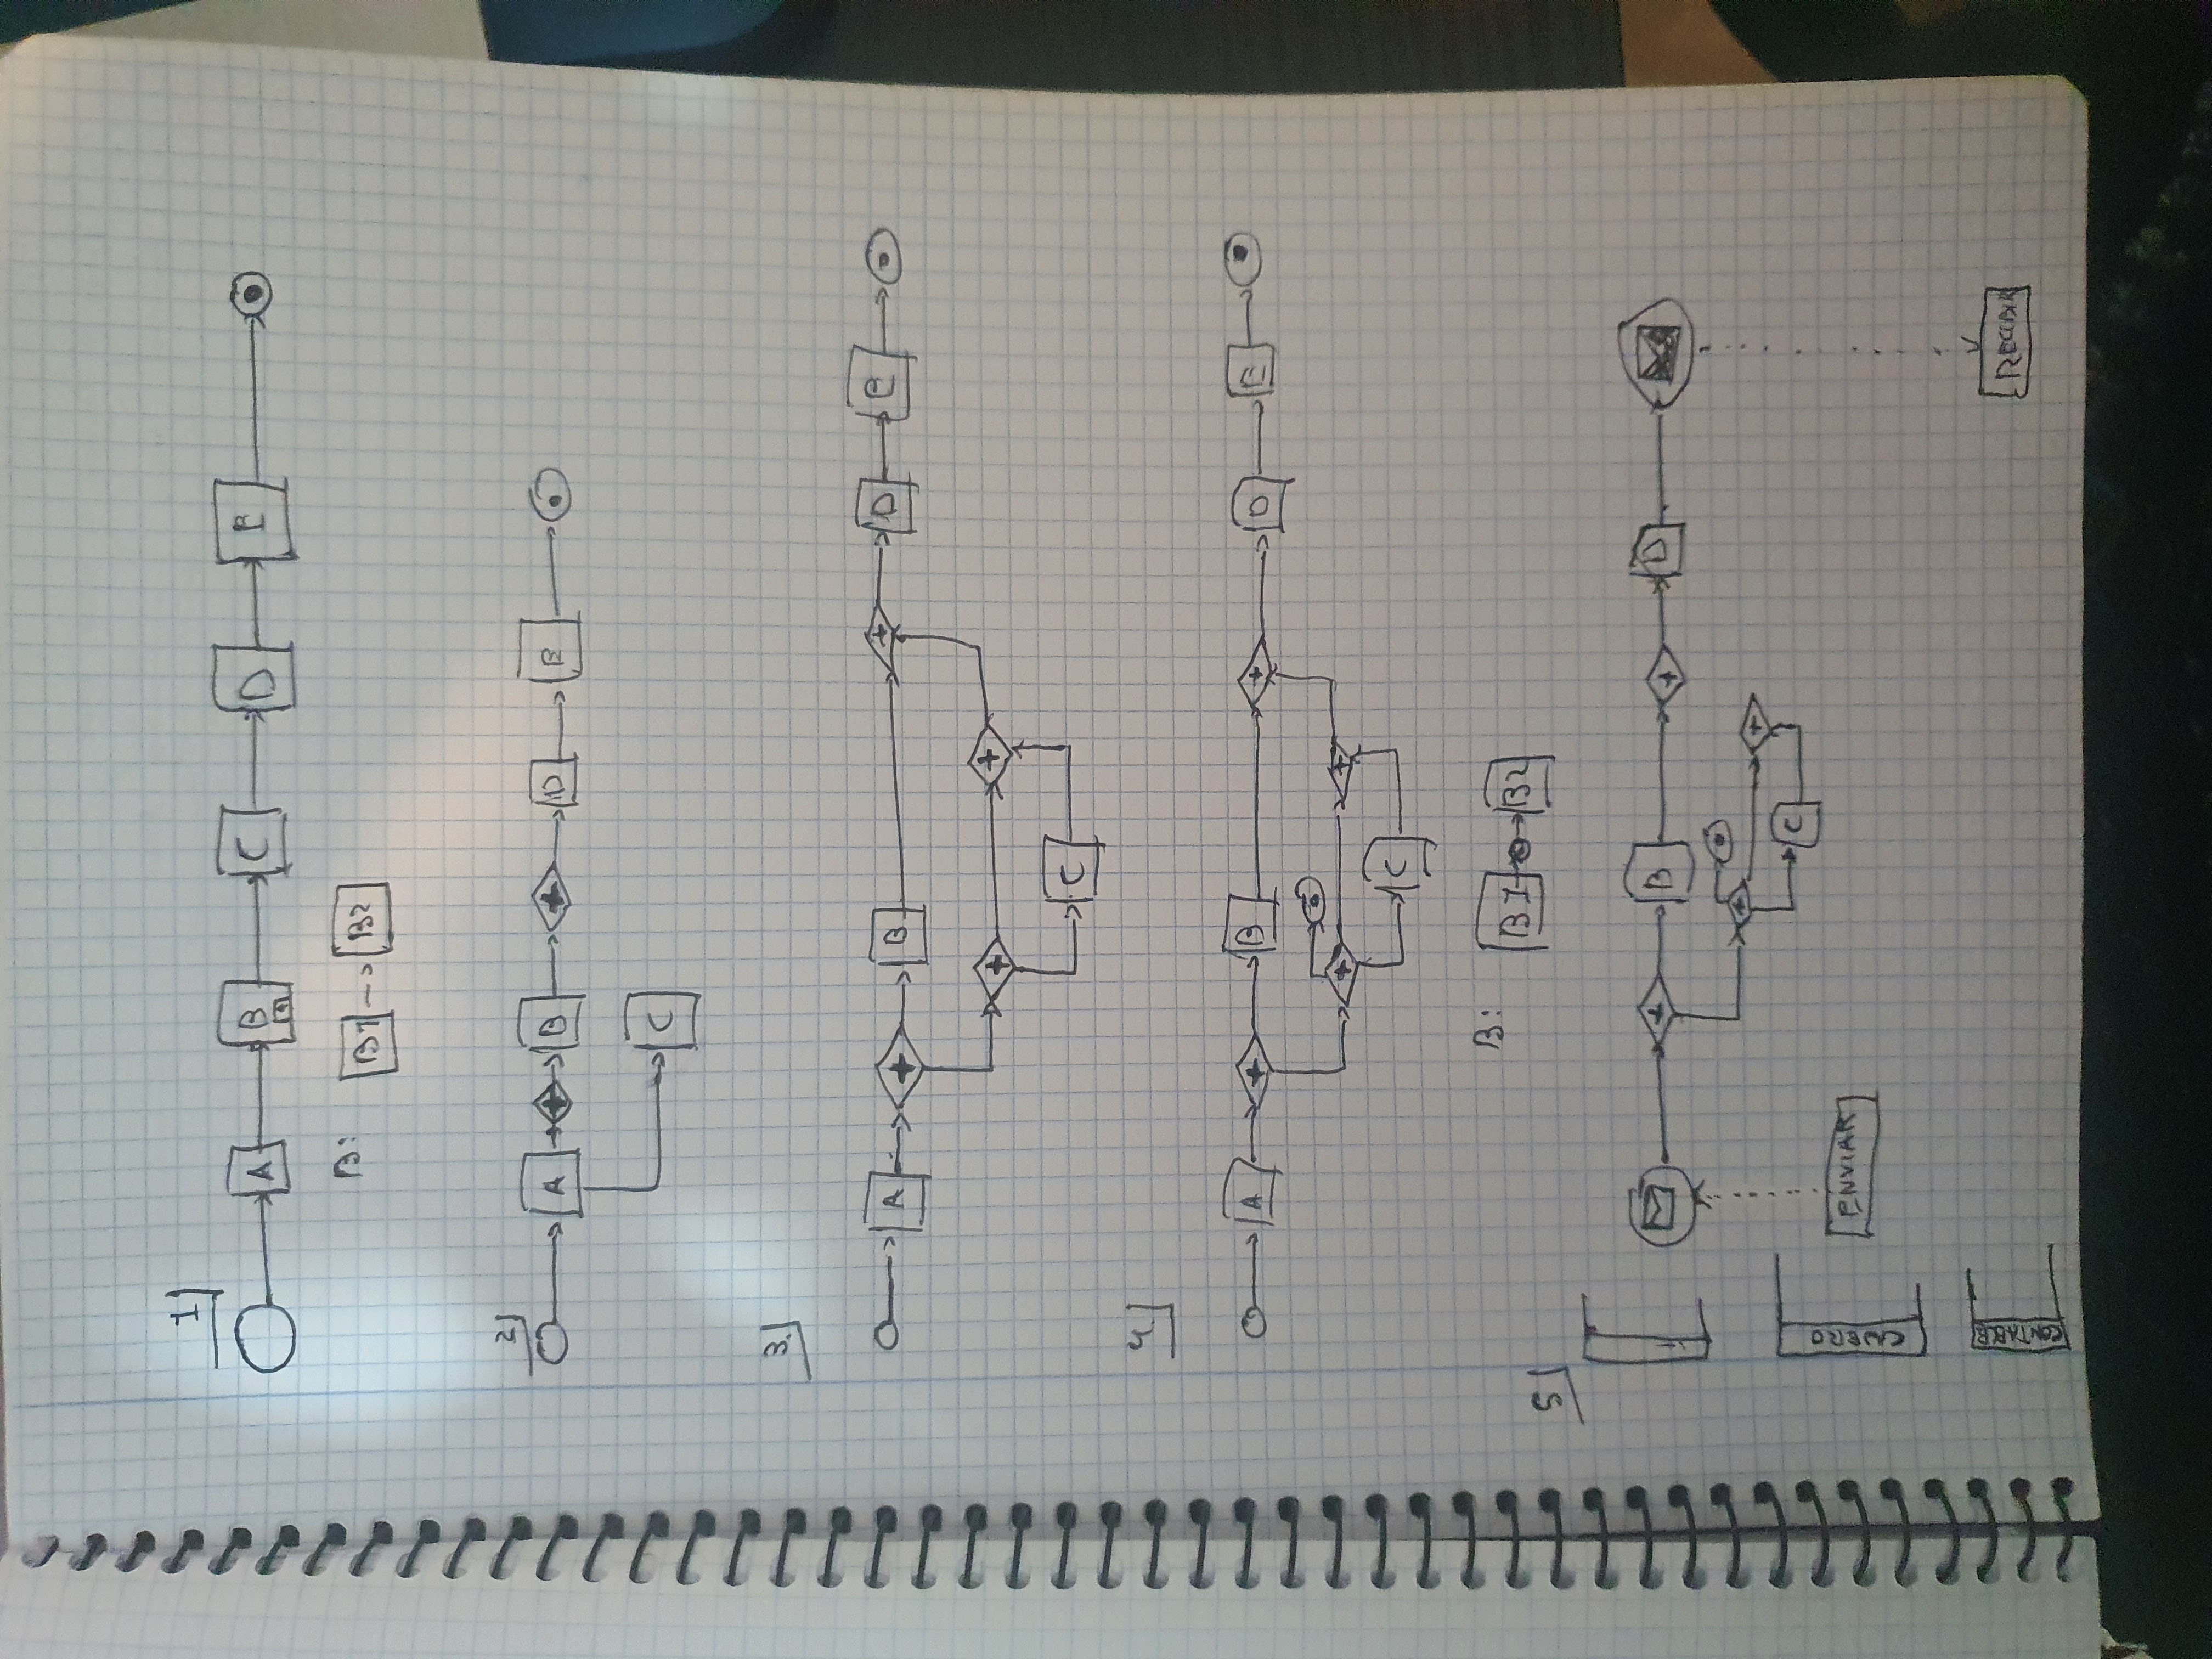 1
A B C D E
B: B1 B2
2
A + B + D E
C
3
A + B + D E
+ +
C
4
A + B + D E
+ +
C
B: B1 B2
5
+ B + D
+ +
C
CAJERO
ENVIAR
CONTABLE
RECIBIR